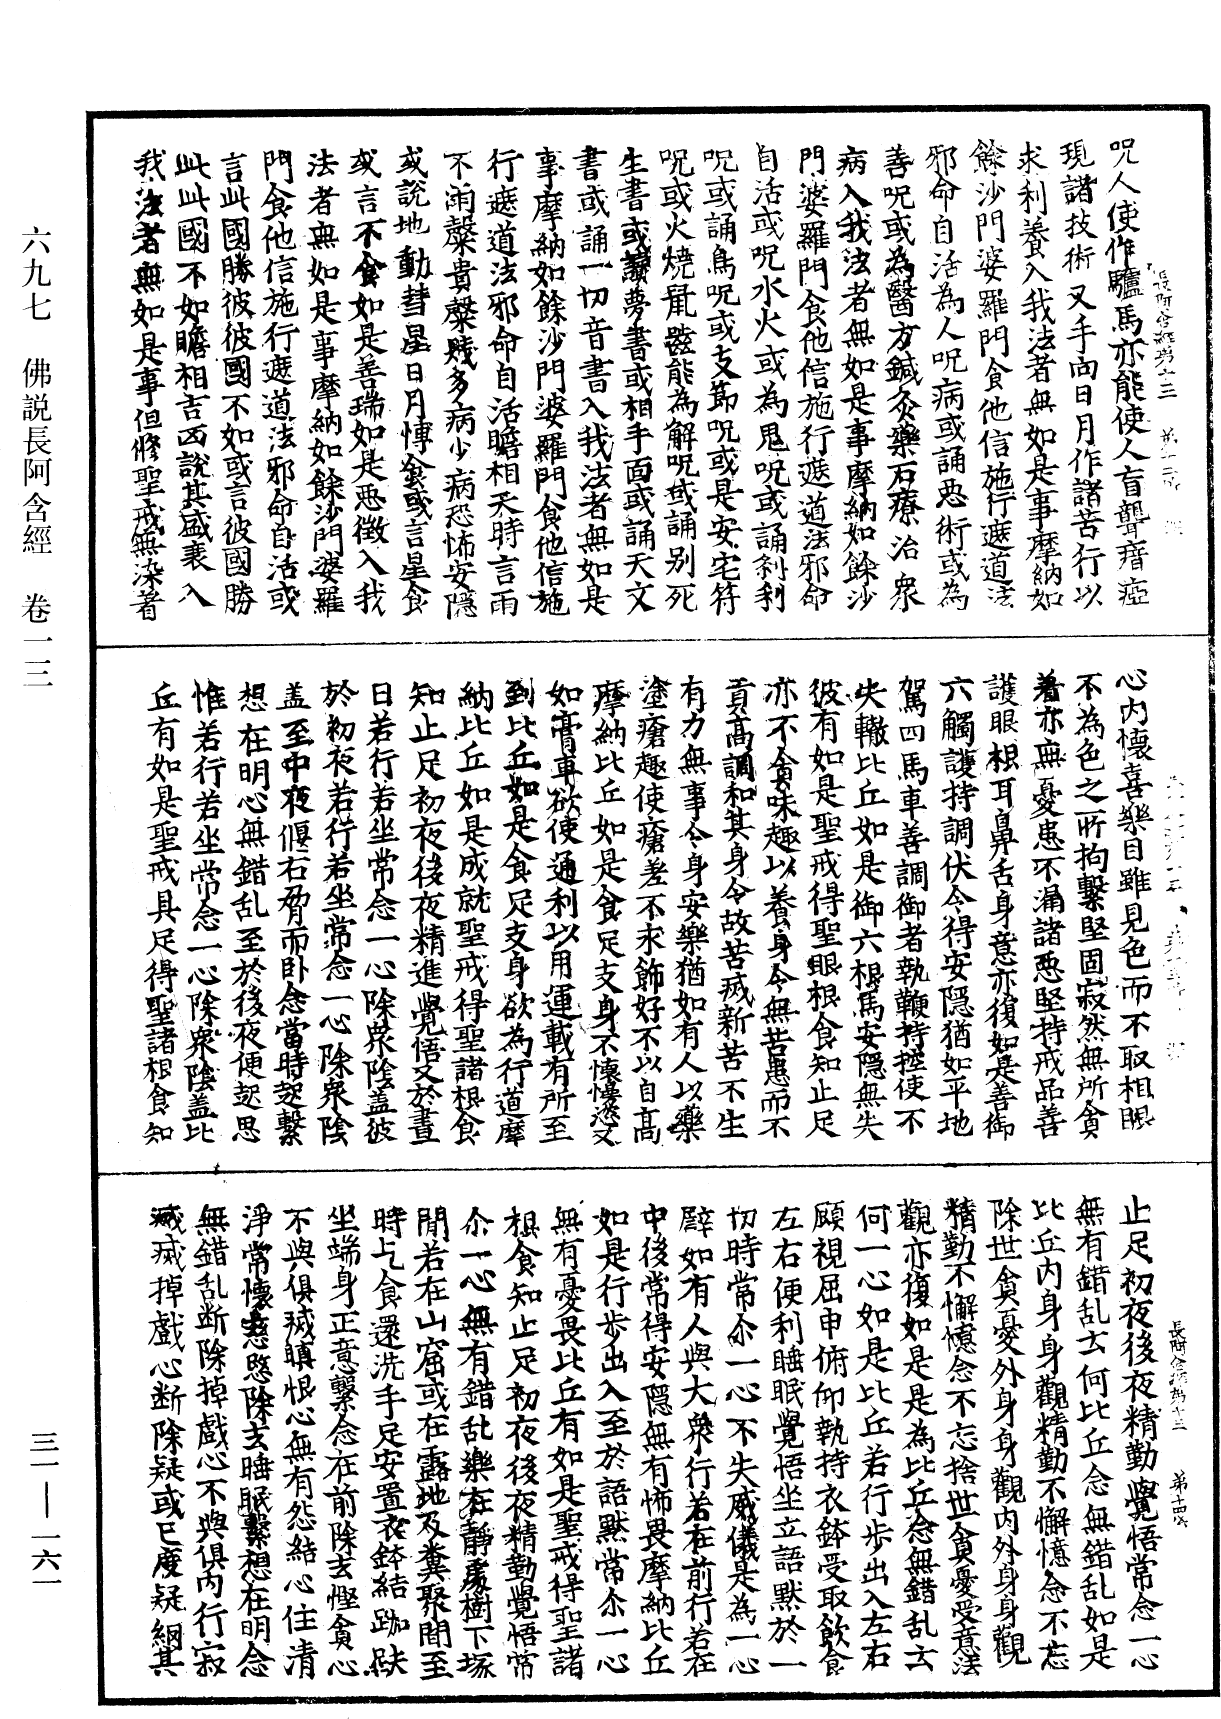 呪人使作驢馬亦能使人盲聾瘖瘂
現諸技術叉手向日月作諸苦行以
求利養入我法者無如是事摩納如
餘沙門婆羅門食他信施行遮道法
邪命自活為人呪病或誦惡術或為
善呪或為醫方鍼灸藥石療治眾
病入我法者無如是事摩納如餘沙
門婆羅門食他信施行遮道法邪命
自活或呪水火或為鬼呪或誦剎利
呪或誦鳥呪或支節呪或是安宅符
呪或火燒鼠齧能為解呪或誦別死
生書或讀夢書或相手面或誦天文
書或誦一切音書入我法者無如是
事摩納如餘沙門婆羅門食他信施
行遮道法邪命自活瞻相天時言雨
不雨穀貴穀賤多病少病恐怖安隱
或說地動彗星日月愽食或言星食
或言不食如是善瑞如是惡徵入我
法者無如是事摩納如餘沙門婆羅
門食他信施行遮道法邪命自活或
言此國勝彼彼國不如或言彼國勝
此此國不如瞻相吉凶說其盛衰入
我法者無如是事但脩聖戒無染著
心內懷喜樂目雖見色而不取相眼
不為色之所拘繫堅固寂然無所貪
著亦無憂患不漏諸惡堅持戒品善
護眼根耳鼻舌身意亦復如是善御
六觸護持調伏令得安隱猶如平地
駕四馬車善調御者執鞭持控使不
失轍比丘如是御六根馬安隱無失
彼有如是聖戒得聖眼根食知止足
亦不貪味趣以養身令無苦患而不
貢高調和其身令故苦滅新苦不生
有力無事令身安樂猶如有人以藥
塗瘡趣使瘡差不求飾好不以自高
摩納比丘如是食足支身不懷慢恣又
如膏車欲使通利以用運載有所至
到比丘如是食足支身欲為行道摩
納比丘如是成就聖戒得聖諸根食
知止足初夜後夜精進覺悟又於晝
日若行若坐常念一心除眾陰蓋彼
於初夜若行若坐常念一心除眾陰
蓋至中夜偃右脅而臥念當時起繫
想在明心無錯乱至於後夜便起思
惟若行若坐常念一心除眾陰蓋比
丘有如是聖戒具足得聖諸根食知
止足初夜後夜精勤覺悟常念一心
無有錯乱云何比丘念無錯乱如是
比丘內身身觀精勤不懈憶念不忘
除世貪憂外身身觀內外身身觀
精勤不懈憶念不忘捨世貪憂受意法
觀亦復如是是為比丘念無錯乱云
何一心如是比丘若行步出入左右
顧視屈申俯仰執持衣鉢受取飲食
左右便利睡眠覺悟坐立語默於一
切時常尒一心不失威儀是為一心
譬如有人與大眾行若在前行若在
中後常得安隱無有怖畏摩納比丘
如是行步出入至於語默常尒一心
無有憂畏比丘有如是聖戒得聖諸
根食知止足初夜後夜精勤覺悟常
尒一心無有錯乱樂在靜處樹下塚
間若在山窟或在露地及糞聚間至
時乞食還洗手足安置衣鉢結跏趺
坐端身正意繫念在前除去慳貪心
不與俱滅瞋恨心無有怨結心住清
淨常懷慈愍除去睡眠繫想在明念
無錯乱斷除掉戲心不與俱內行寂
滅滅掉戲心斷除疑或已度疑網其
長阿含經第十三 第十四張
六九七 佛説長阿含經 卷一三
三一——一六一